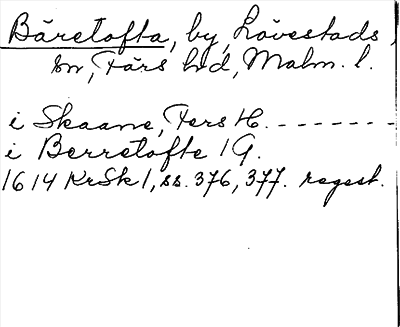 Bäretofta, by, Lövestads
sn, Färs hd, Malm. l.
i Skaane, Fers H. --------
i Berretofte 1 G.
1614 KrSk 1, ss. 376, 377. regest.